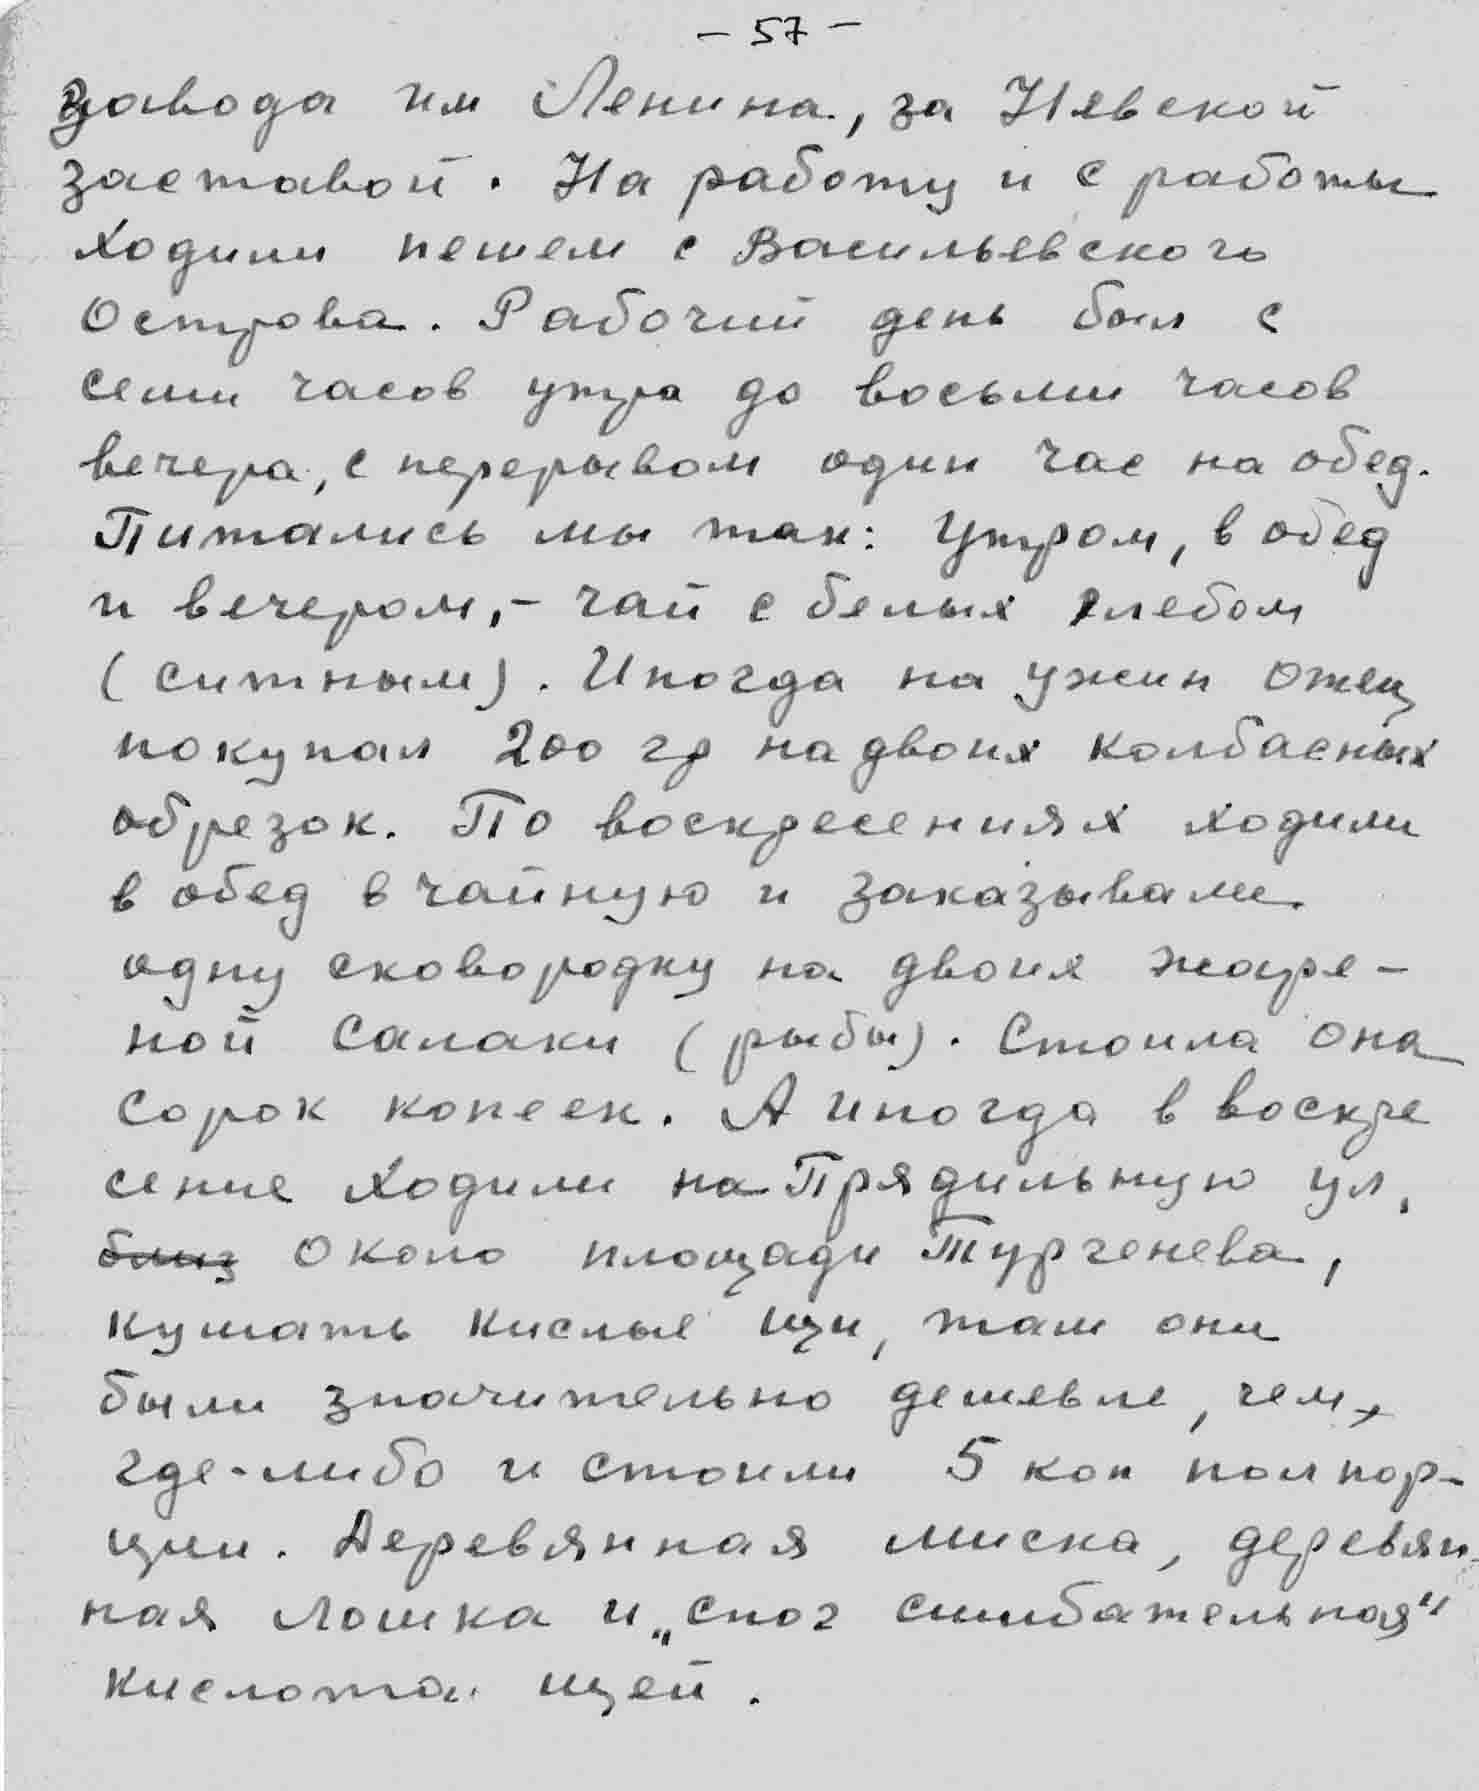 - 57 -
завода им Ленина, за Невской
заставой. На работу и с работы
ходили пешем с Васильевского
Острова. Рабочий день был с
семи часов утра до восьми часов
вечера, с перерывом один час на обед.
Питались мы так: Утром, в обед
и вечером,- чай с белых хлебом
(ситным). Иногда на ужин отец
покупал 200 гр на двоих колбасных
обрезок. По воскресениях ходили
в обед в чайную и заказывали
одну сковородку на двоих жаре-
ной салаки (рыбы). Стоила она
сорок копеек. А иногда в воскре
сение ходили на Прядильную ул,
близ Около площади Тургенева,
кушать кислые щи, там они
были значительно дешевле, чем,
где-либо и стоили 5 коп полпор-
ции. Деревянная миска, деревян-
ная лошка и „сног сшибательная"
кислота щей.